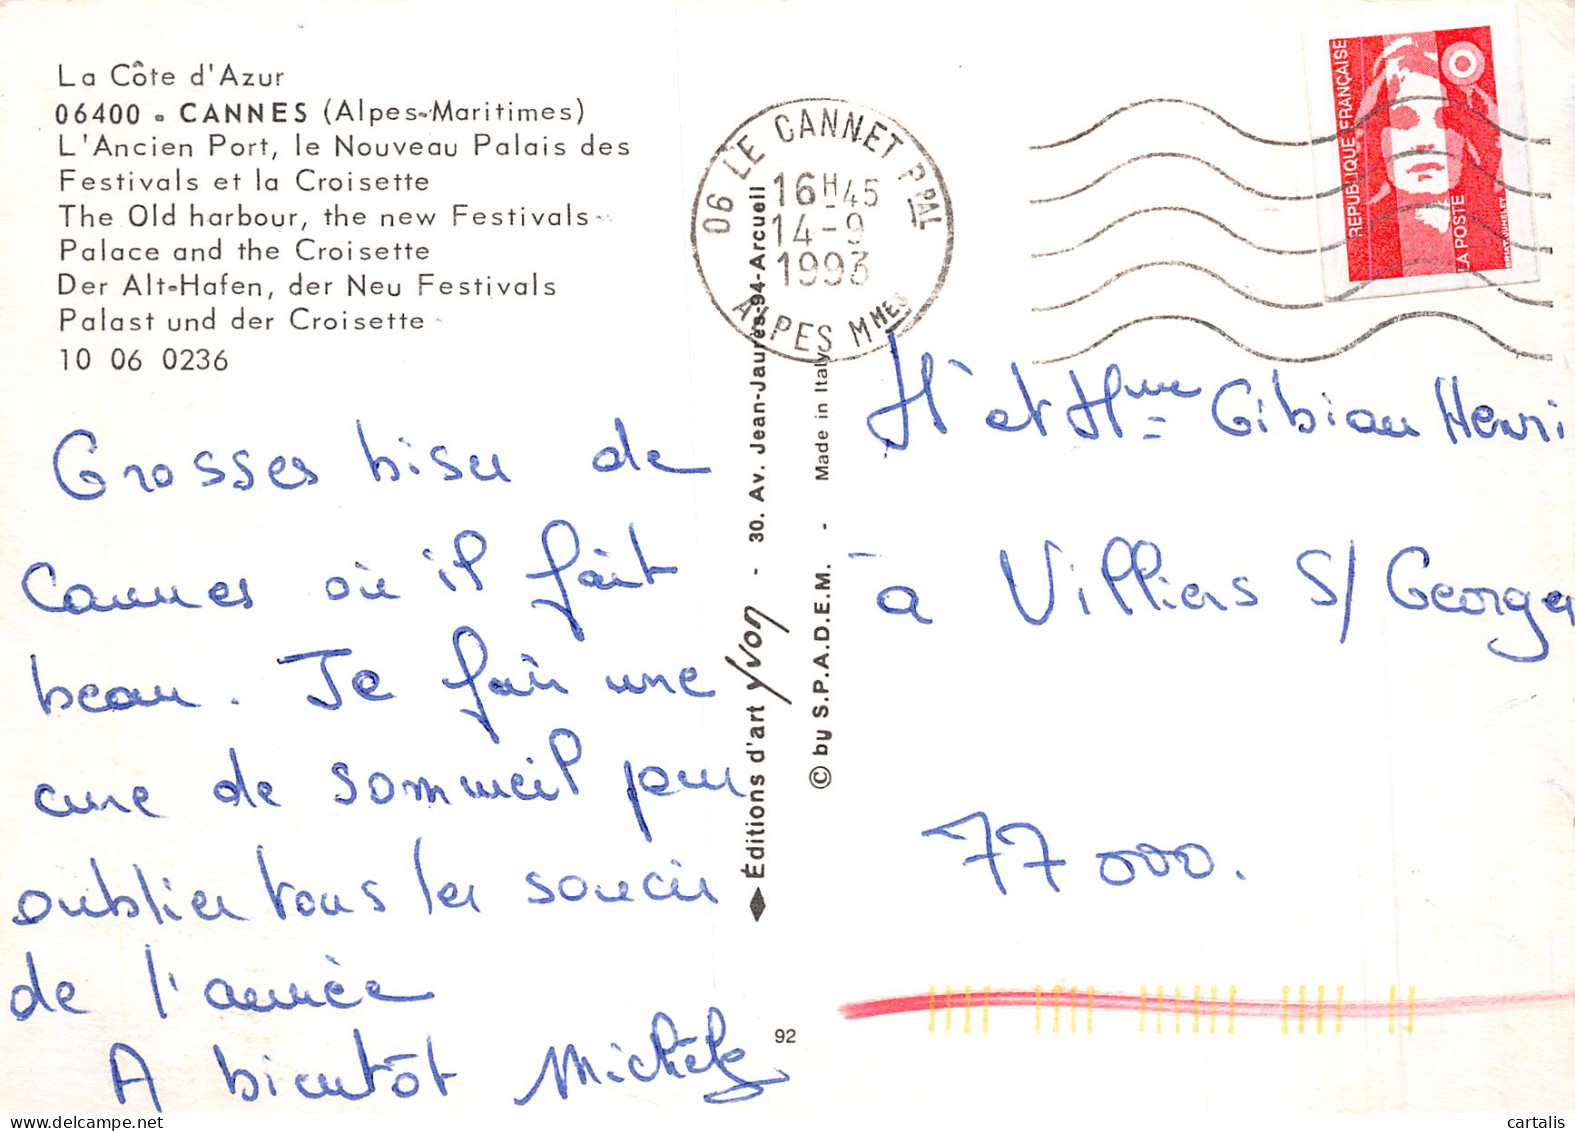 La Côte d'Azur
06400 - CANNES (Alpes-Maritimes)
L'Ancien Port, le Nouveau Palais des
Festivals et la Croisette
The Old harbour, the new Festivals
Palace and the Croisette
Der Alt-Hafen, der Neu Festivals
Palast und der Croisette
10 06 0236
Grosses bises de
Cannes où il fait
beau. Je fais une
cure de sommeil pour
oublier tous les soucis
de l'année
A bientôt Michèle
Éditions d'art Yvon - 30. Av. Jean-Jaurès-94-Arcueil
© by S.P.A.D.E.M. - Made in Italy
92
06 LE CANNET PPAL
16H45
14-9
1993
ALPES MMES
RÉPUBLIQUE FRANÇAISE
LA POSTE
BRIAT. JUMELET
Mr et Mme Gibian Henri
à Villiers S/ Georges
77000.
cartalis